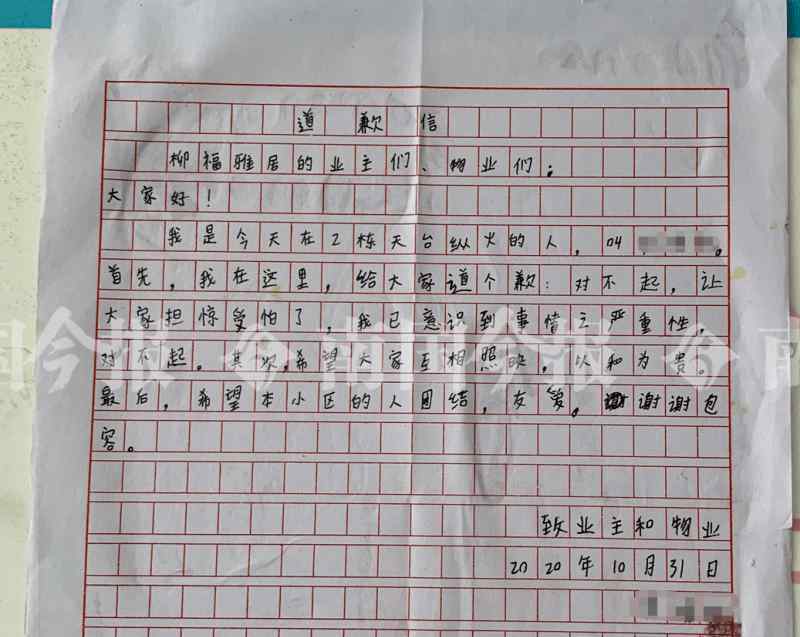 道歉信
柳福雅居的业主们、物业们：
大家好！
我是今天在2栋天台纵火的人，04
首先，我在这里，给大家道个歉：对不起，让
大家担惊受怕了，我已意识到事情之严重性，
对不起。其次，希望大家互相照映，以和为贵。
最后，希望本小区的人团结，友爱。谢谢包
容。
致业主和物业
2020年10月31日
南国今报